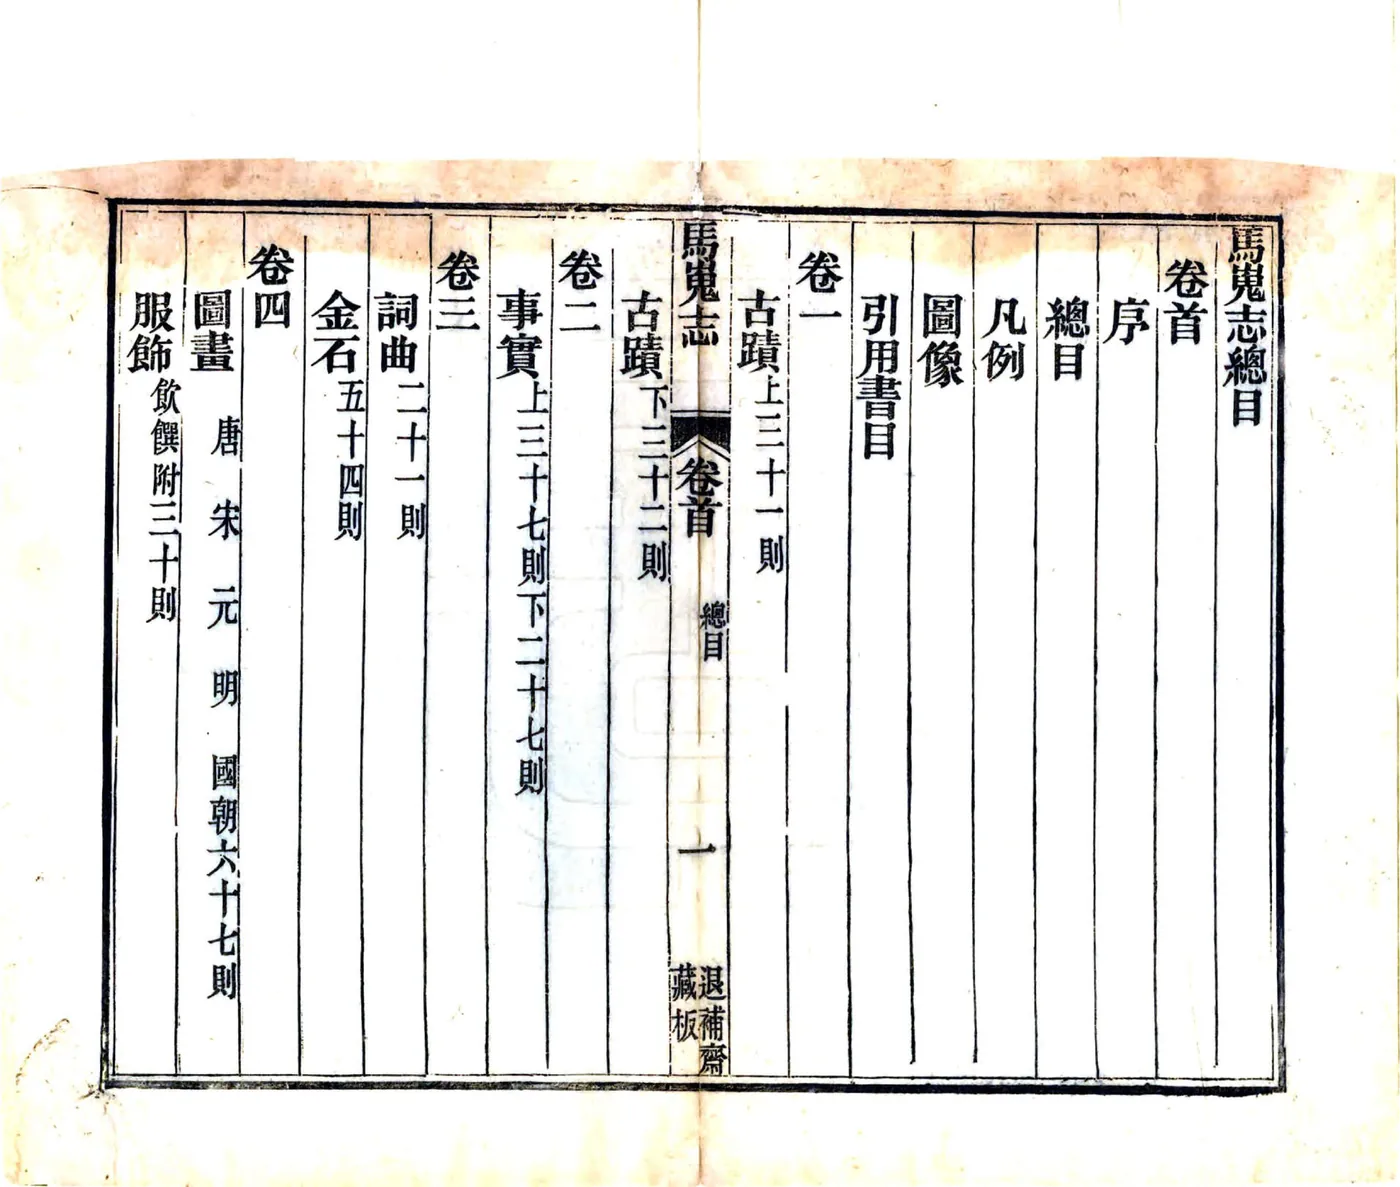 馬嵬志總目
卷首
序
總目
凡例
圖像
引用書目
卷一
古蹟上三十一則
馬嵬志 卷首 總目 一 退補齋藏板
古蹟下三十二則
卷二
事實上三十七則下二十七則
卷三
詞曲二十一則
金石五十四則
卷四
圖畫 唐 宋 元 明 國朝六十七則
服飾飲饌附三十則